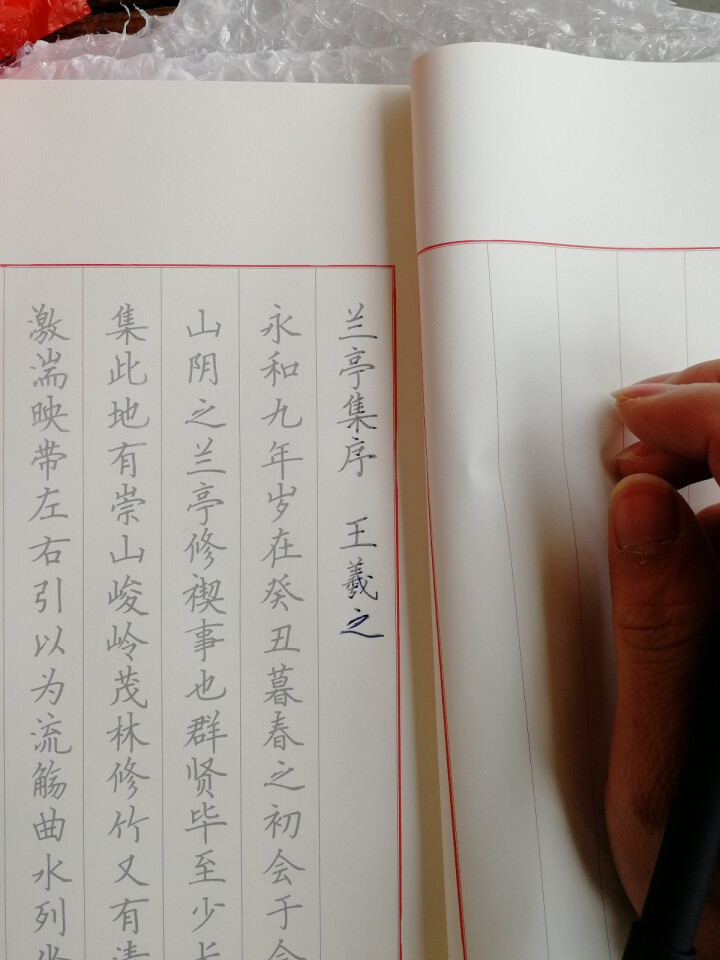 兰亭集序 王羲之
永和九年岁在癸丑暮春之初会于会
山阴之兰亭修禊事也群贤毕至少长
集此地有崇山峻岭茂林修竹又有清
激湍映带左右引以为流觞曲水列坐